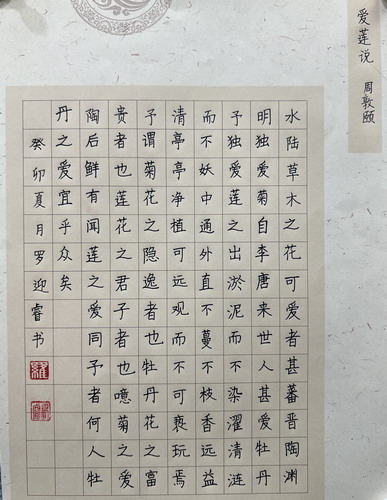 爱莲说
周敦颐
水陆草木之花可爱者甚蕃晋陶渊
明独爱菊自李唐来世人甚爱牡丹
予独爱莲之出淤泥而不染濯清涟
而不妖中通外直不蔓不枝香远益
清亭亭净植可远观而不可亵玩焉
予谓菊花之隐逸者也牡丹花之富
贵者也莲花之君子者也噫菊之爱
陶后鲜有闻莲之爱同予者何人牡
丹之爱宜乎众矣
癸卯夏月罗迎睿书